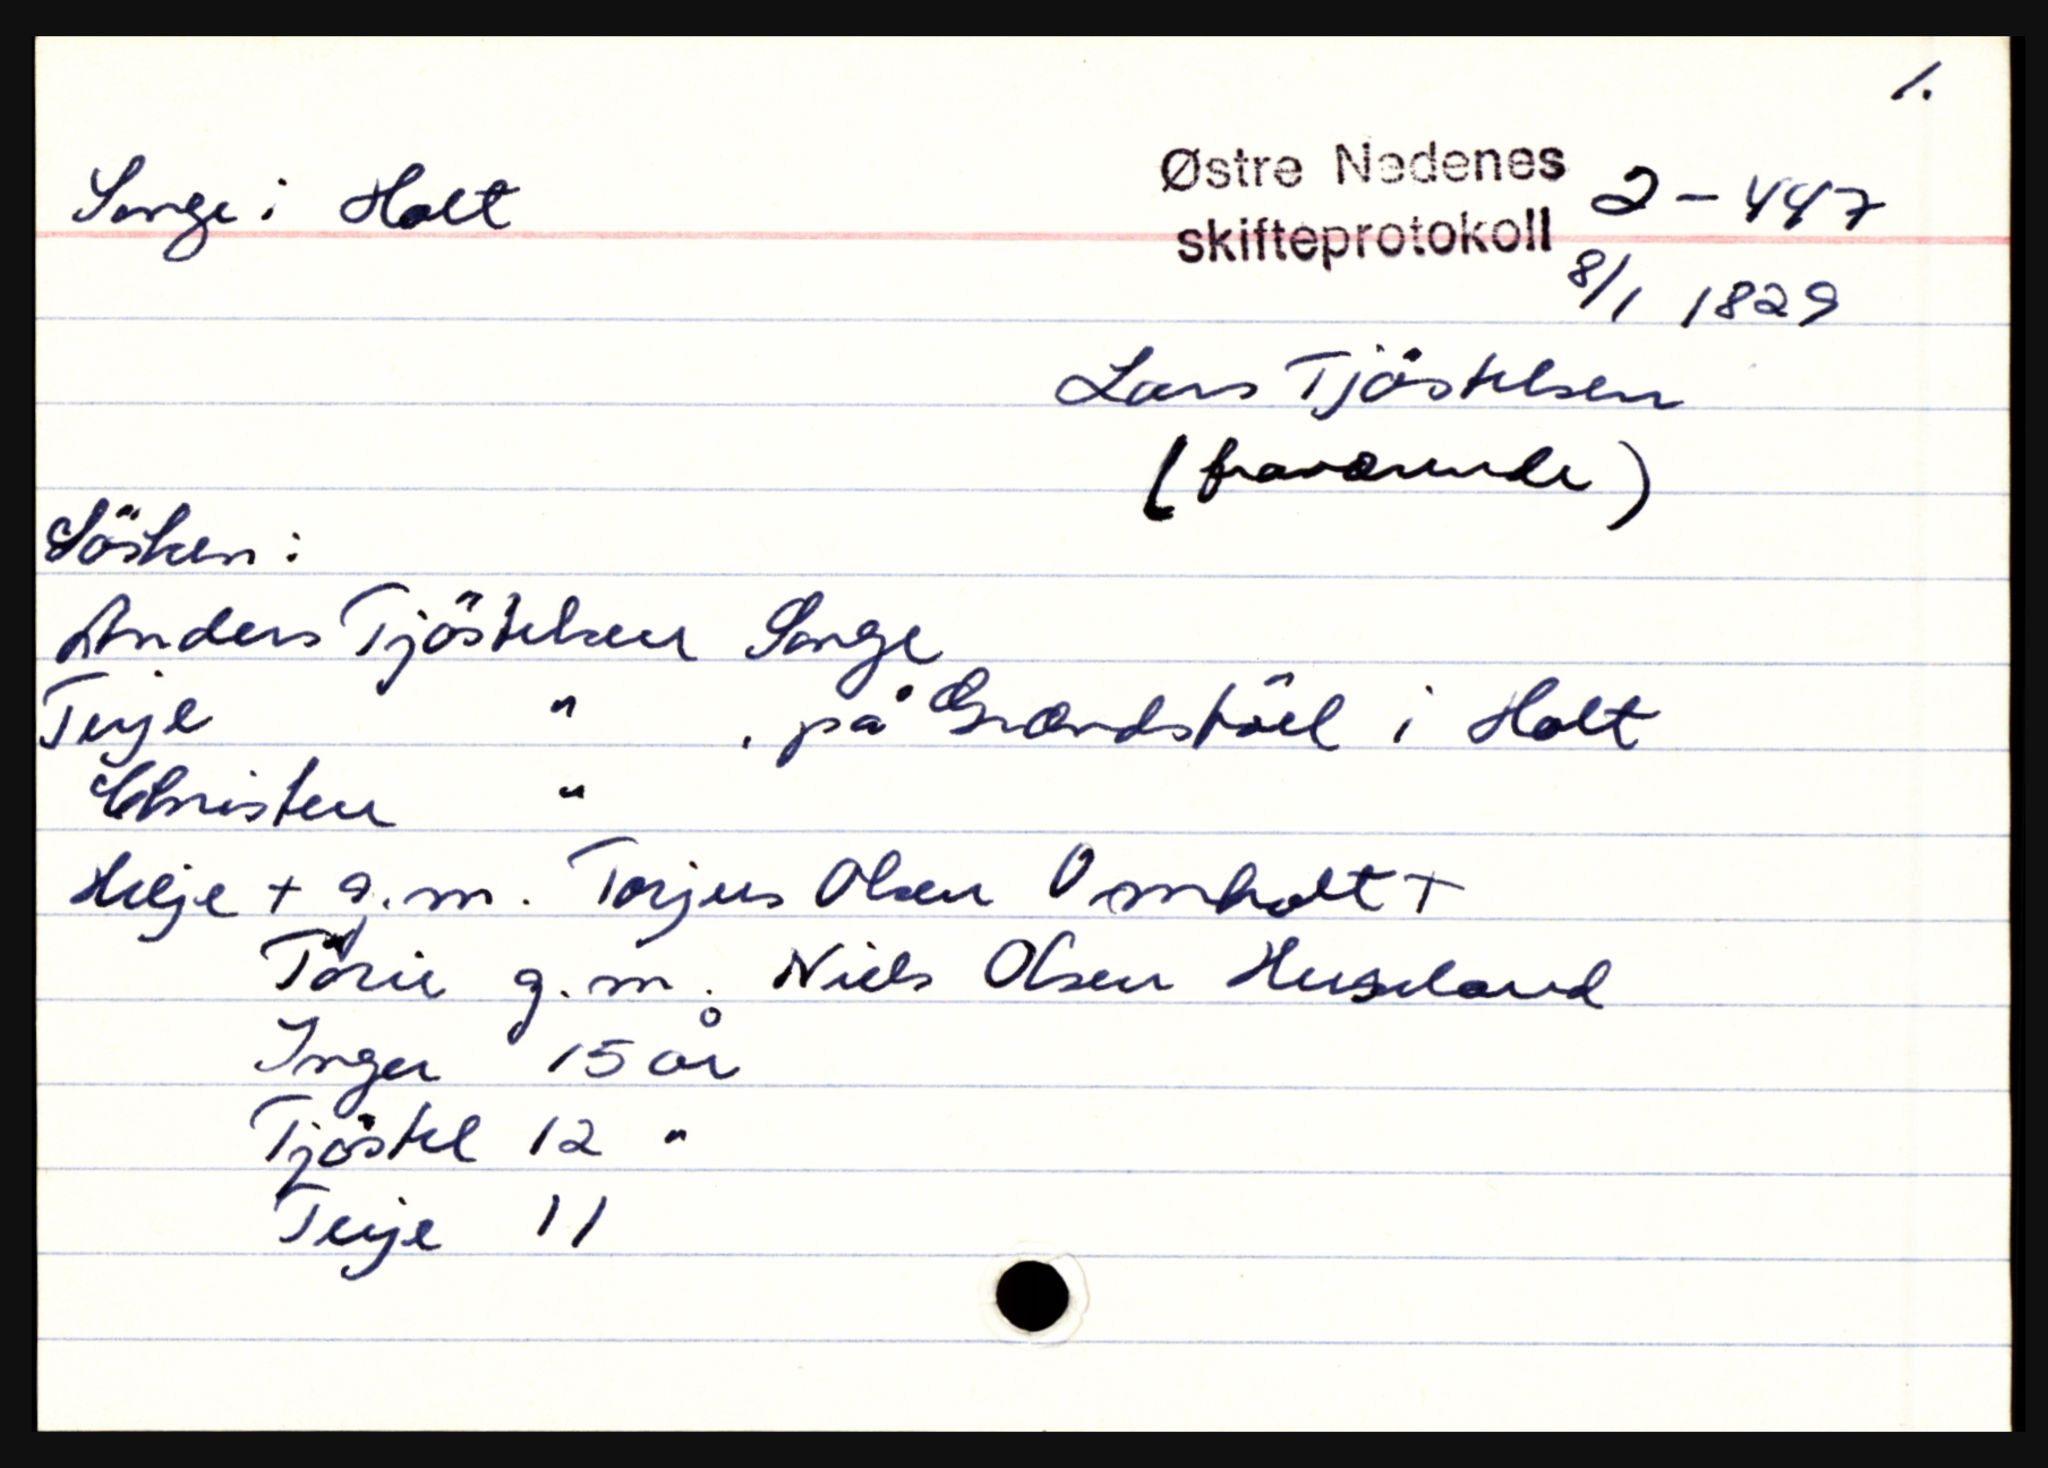 1.
Songe i Holt
Østre Nedenes 2-447
skifteprotokoll
8/1 1829
Lars Tjöstelsen
(fraværende)
Sösken:
Anders Tjöstelsen Songe
Terje " , på Grændstöel i Holt
Christen "
Helje + g.m. Torjus Olsen Omholt +
Törie g.m. Niels Olsen Huseland
Inger 15 år
Tjöstel 12 "
Terje 11